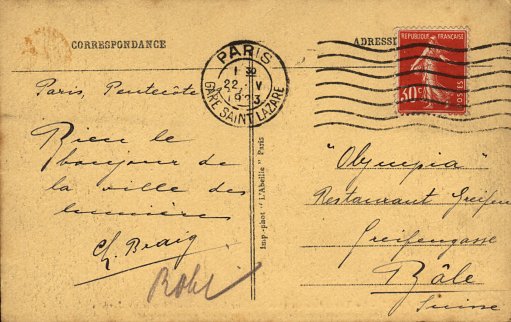 CORRESPONDANCE
ADRESSE
PARIS
1 30
22 V
1923
GARE SAINT LAZARE
REPUBLIQUE FRANÇAISE
POSTES
30c
Paris, Pentecôte
Bien le
bonjour de
la ville des
lumière
Ch. Braig
Imp.-phot "L'Abeille" Paris
"Olympia"
Restaurant Greifen
Greifengasse
Bâle
Suisse